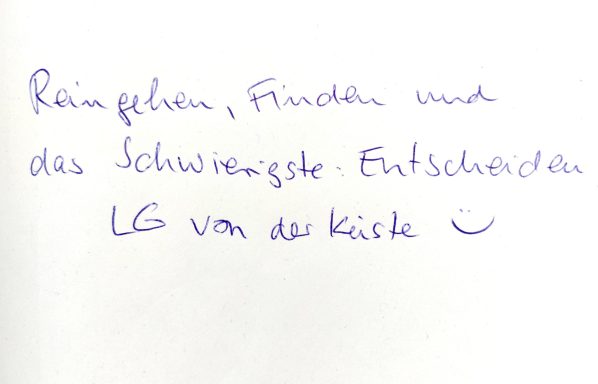 Reingehen, Finden und
das Schwierigste: Entscheiden
LG von der Küste